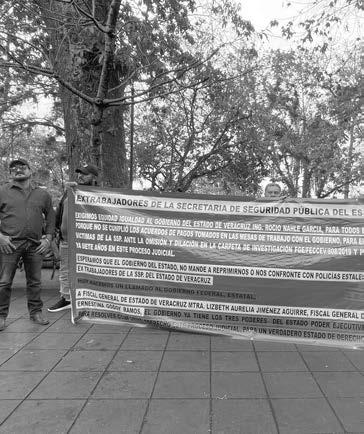 EXTRABAJADORES DE LA SECRETARIA DE SEGURIDAD PÚBLICA DEL
EXIGIMOS EQUIDAD IGUALDAD AL GOBIERNO DEL ESTADO DE VERACRUZ. ING. ROCIO NAHLE GARCIA, PARA TODOS
PORQUE NO SE CUMPLIO LOS ACUERDOS DE PAGOS TOMADOS EN LAS MESAS DE TRABAJO CON EL GOBIERNO, PARA
VICTIMAS DE LA SSP. ANTE LA OMISIÓN Y DILACIÓN EN LA CARPETA DE INVESTIGACIÓN
YA SIETE AÑOS EN ESTE PROCESO JUDICIAL.
ESPERAMOS QUE EL GOBIERNO DEL ESTADO, NO MANDE A REPRIMIRNOS O NOS CONFRONTE CON POLICIAS
EX TRABAJADORES DE LA SSP. DEL ESTADO DE VERACRUZ
HOY HACEMOS UN LLAMADO AL GOBIERNO FEDERAL, ESTATAL,
A FISCAL GENERAL DE ESTADO DE VERACRUZ MTRA. LIZBETH AURELIA JIMENEZ AGUIRRE, FISCAL GENERAL
ERNESTINA GODOY RAMOS, EL GOBIERNO YA TIENE LOS TRES PODERES DEL ESTADO PODER
PARA UN VERDADERO ESTADO